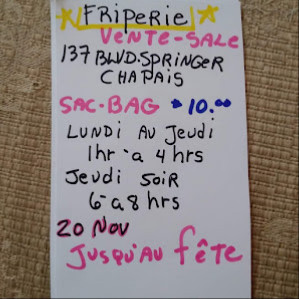 FRIPERIE
VENTE-SALE
137 BLVD.SPRINGER
CHAPAIS
SAC-BAG $10.00
LUNDI AU JEUDI
1hr à 4 hrs
JEUDI SOIR
6 à 8 hrs
20 NOV
JUSQU'AU FÊTE